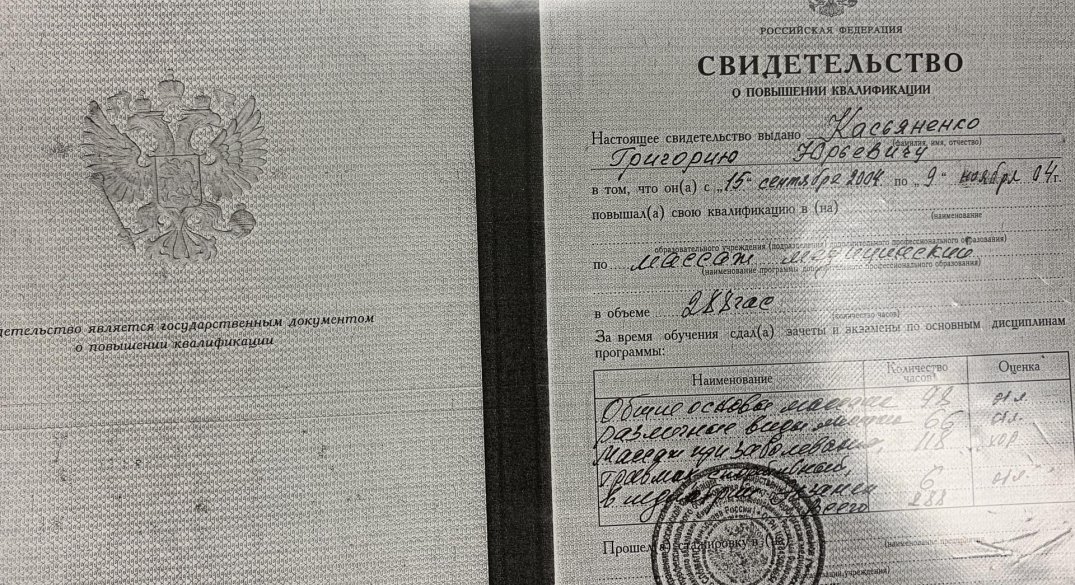 детельство является государственным документом
о повышении квалификации
РОССИЙСКАЯ ФЕДЕРАЦИЯ
СВИДЕТЕЛЬСТВО
О ПОВЫШЕНИИ КВАЛИФИКАЦИИ
Настоящее свидетельство выдано Касьяненко
(фамилия, имя, отчество)
Григорию Юрьевичу
в том, что он(а) с „15" сентября 2004 по „9" ноября 04г.
повышал(а) свою квалификацию в (на)
(наименование
образовательного учреждения (подразделения) дополнительного профессионального образования)
по массаж медицинский
(наименование программы дополнительного профессионального образования)
в объеме 288 час
(количество часов)
За время обучения сдал(а) зачеты и экзамены по основным дисциплинам
программы:
Наименование Количество часов Оценка
Общие основы массажа отл.
различные виды массажа 66 отл.
Массаж при заболеваниях, 118 хор
травмах, спортивный,
в 6 отл.
всего 288
Прошел(а) стажировку в (на)